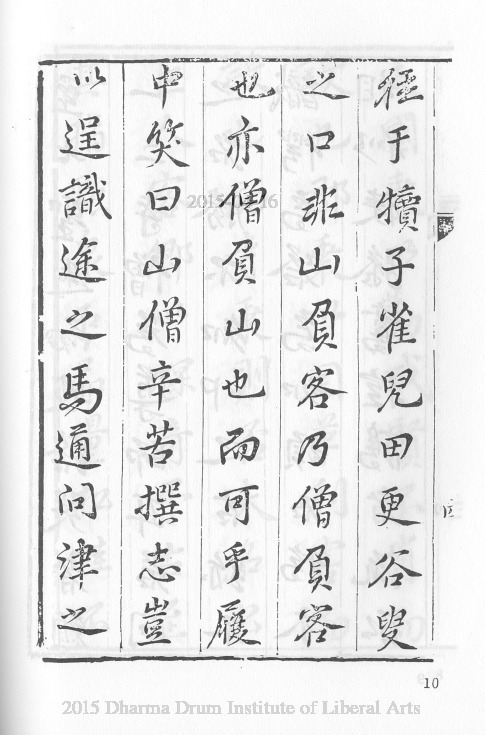 徑于犢子雀兒田更谷叟
之口非山負客乃僧負客
也亦僧負山也而可乎履
中笑曰山僧辛苦撰志豈
以逞識途之馬適問津之
10
2015 Dharma Drum Institute of Liberal Arts